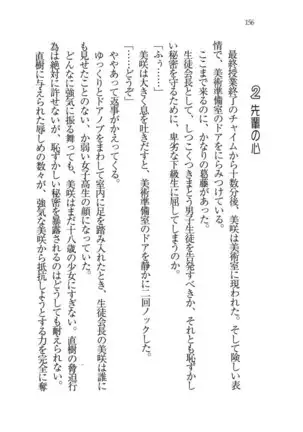 156
② 先輩の心
最終授業終了のチャイムから十数分後、美咲は美術室に現われた。そして険しい表
情で、美術準備室のドアをにらみつけている。
ここまで来るのに、かなりの葛藤があった。
生徒会長として、しつこくつきまとう男子生徒を告発すべきか、それとも恥ずかし
い秘密を守るために、卑劣な下級生に屈してしまうのか。
「ふぅ……」
美咲は大きく息を吐きだすと、美術準備室のドアを静かに二回ノックした。
「……どうぞ」
ややあって返事がかえってきた。
ゆっくりとドアノブをまわして室内に足を踏み入れたとき、生徒会長の美咲は誰に
も見せたことのない、か弱い女子高生の顔になっていた。
どんなに強気に振る舞っても、美咲はまだ十八歳の少女にすぎない。直樹の脅迫行
為は絶対に許せないが、恥ずかしい秘密を暴露されるのはどうしても耐えられない。
直樹に与えられた辱しめの数々が、強気な美咲から抵抗しようとする力を完全に奪